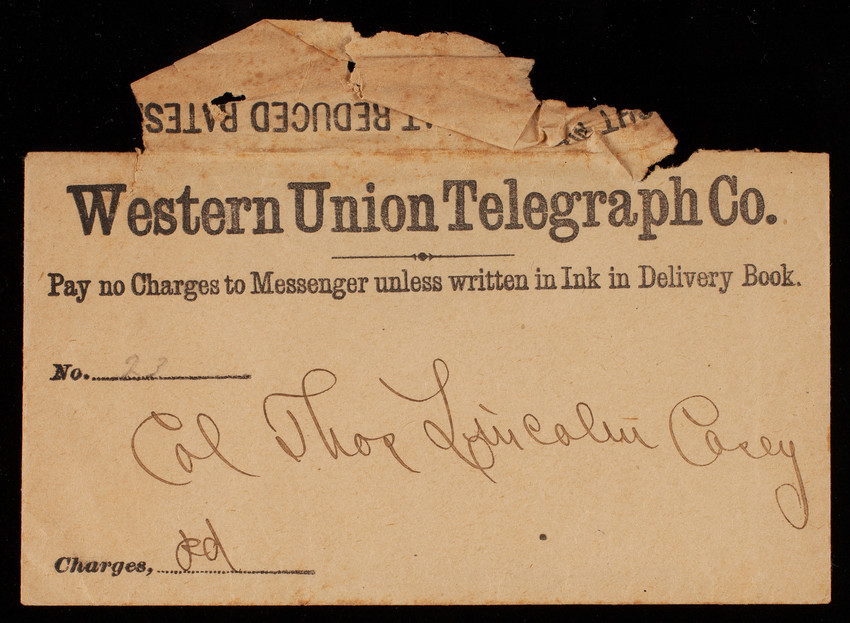 AT REDUCED RATES.
IN THE
Western Union Telegraph Co.
Pay no Charges to Messenger unless written in Ink in Delivery Book.
No. 23
Col Thos Lincoln Casey
Charges, pd